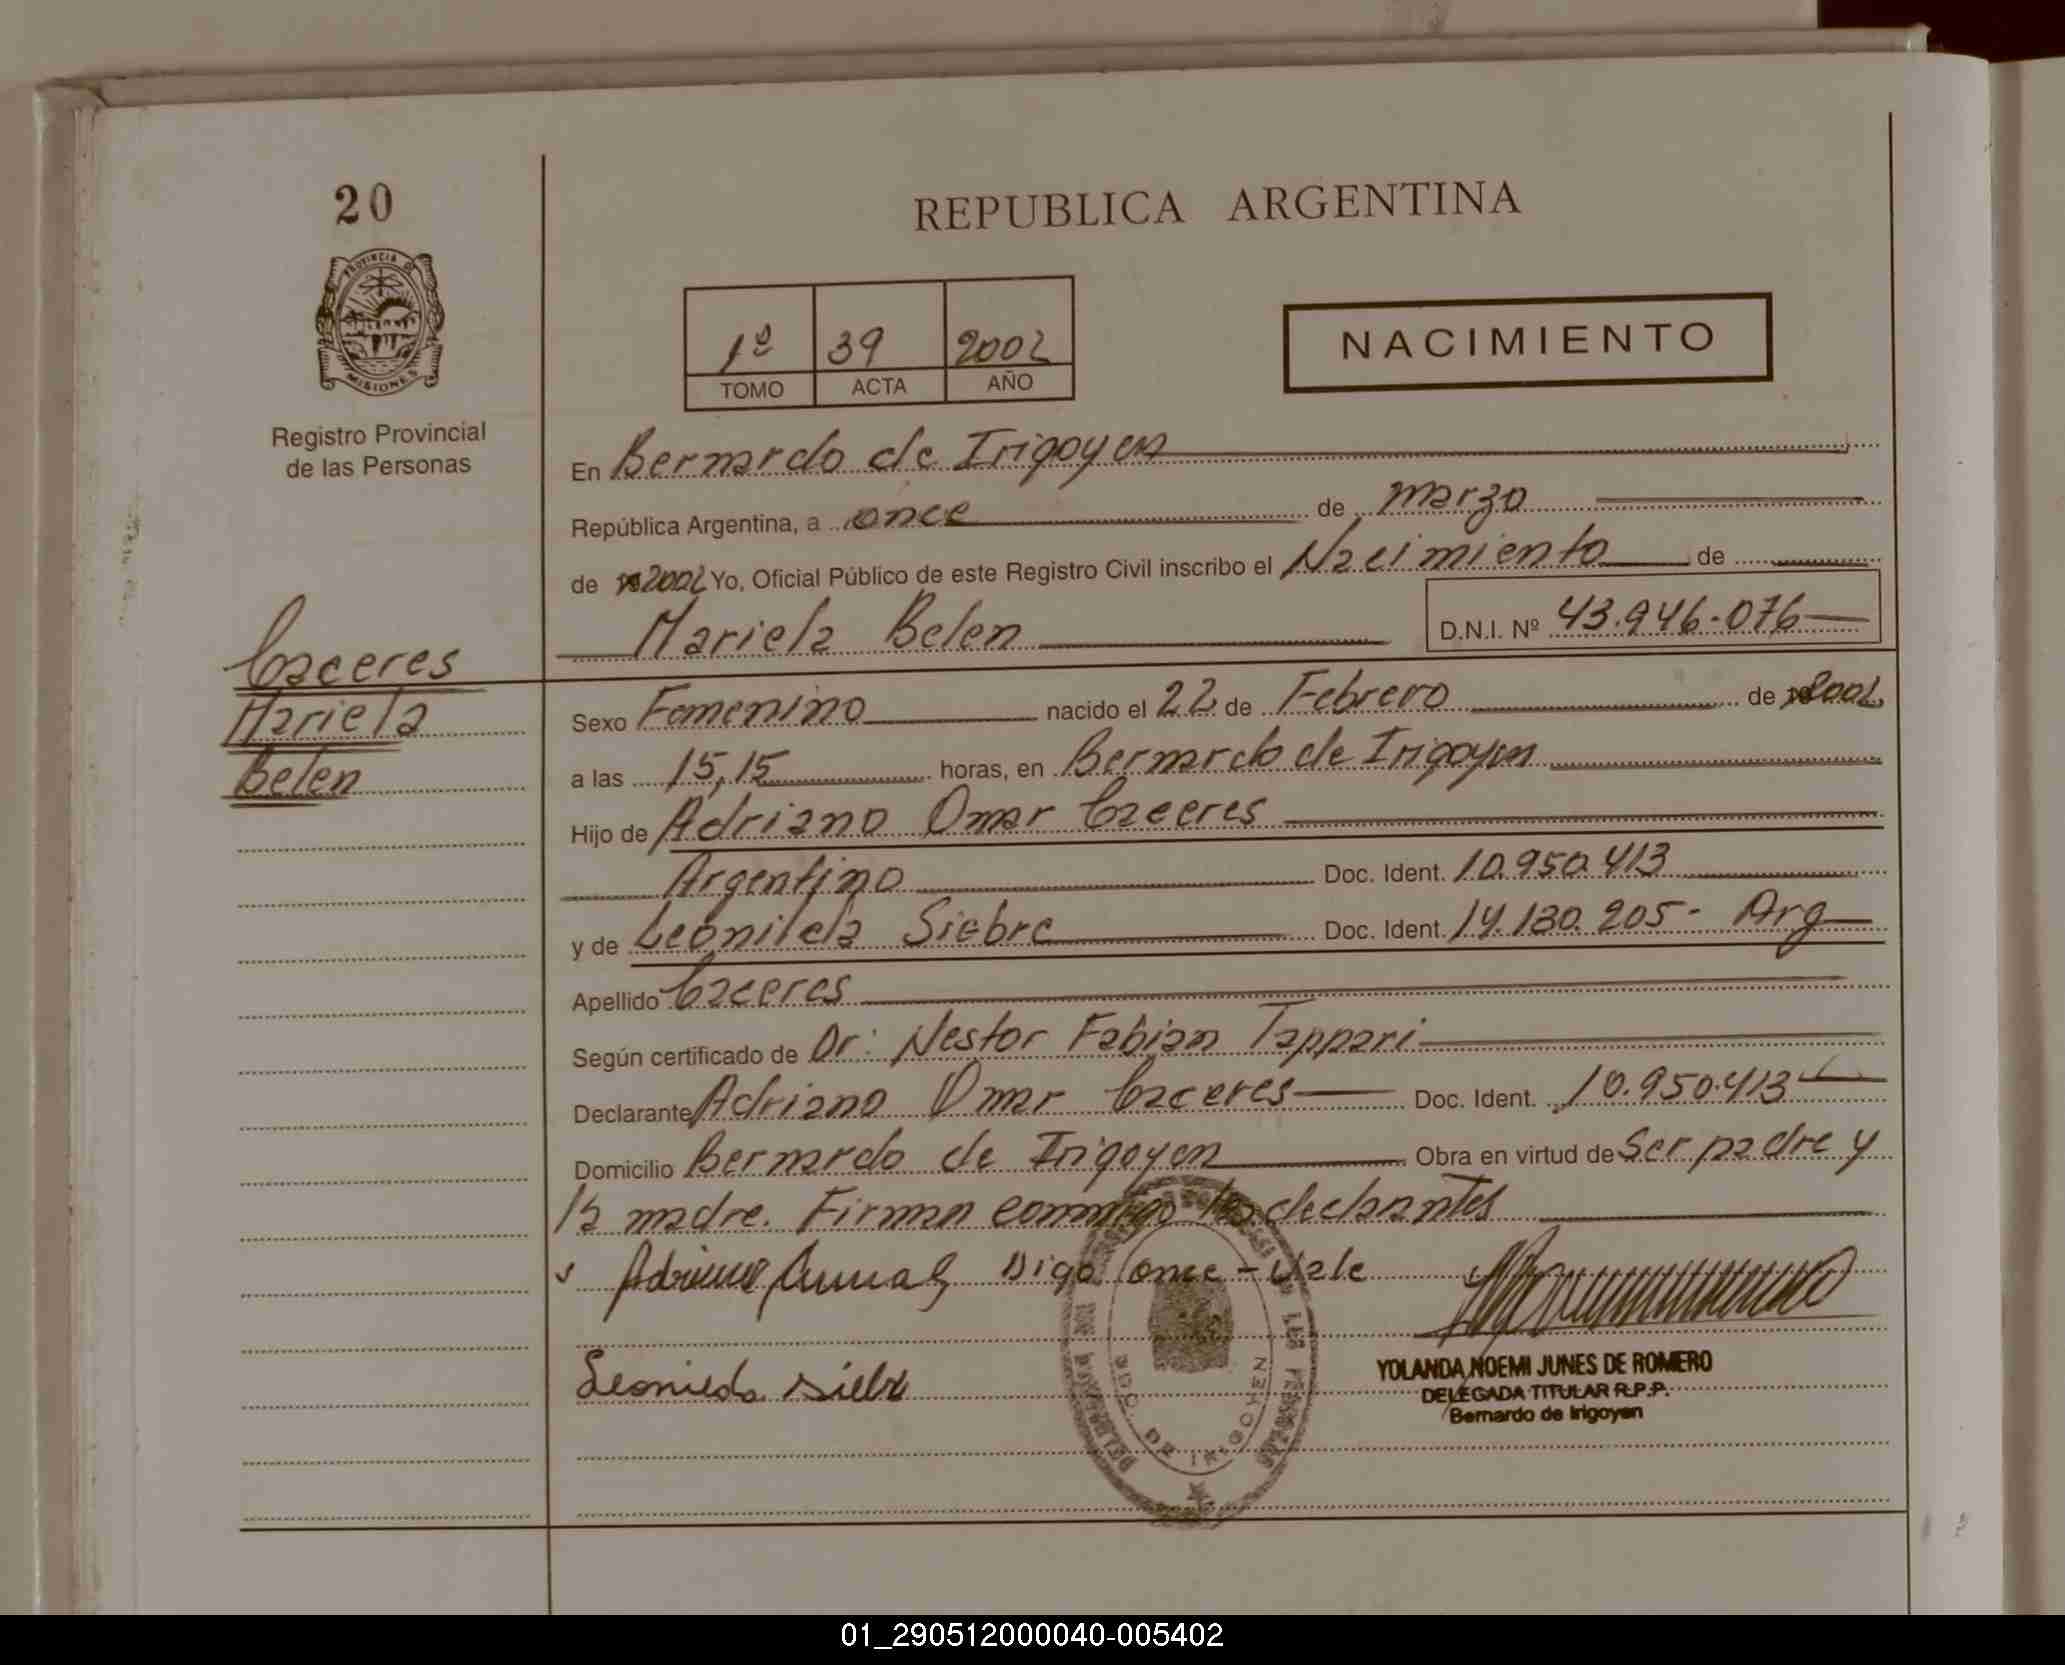 20
REPUBLICA ARGENTINA
PROVINCIA DE
MISIONES
Registro Provincial
de las Personas
1º 39 2002
TOMO ACTA AÑO
NACIMIENTO
En Bernardo de Irigoyen
República Argentina, a once de marzo
de 2002 Yo, Oficial Público de este Registro Civil inscribo el Nacimiento de
Mariela Belen D.N.I. Nº 43.946.076
Caceres
Mariela
Belen
Sexo Femenino nacido el 22 de Febrero de 2002
a las 15,15 horas, en Bernardo de Irigoyen
Hijo de Adriano Omar Caceres
Argentino Doc. Ident. 10.950.413
y de Leonilda Siebre Doc. Ident. 14.130.205- Arg
Apellido Caceres
Según certificado de Dr: Nestor Fabian Tappari
Declarante Adriano Omar Caceres Doc. Ident. 10.950.413
Domicilio Bernardo de Irigoyen Obra en virtud de Ser padre y
la madre. Firman conmigo los declarantes
Digo once - Vale
YOLANDA NOEMI JUNES DE ROMERO
DELEGADA TITULAR R.P.P.
Bernardo de Irigoyen
BDO. DE IRIGOYEN
01_290512000040-005402